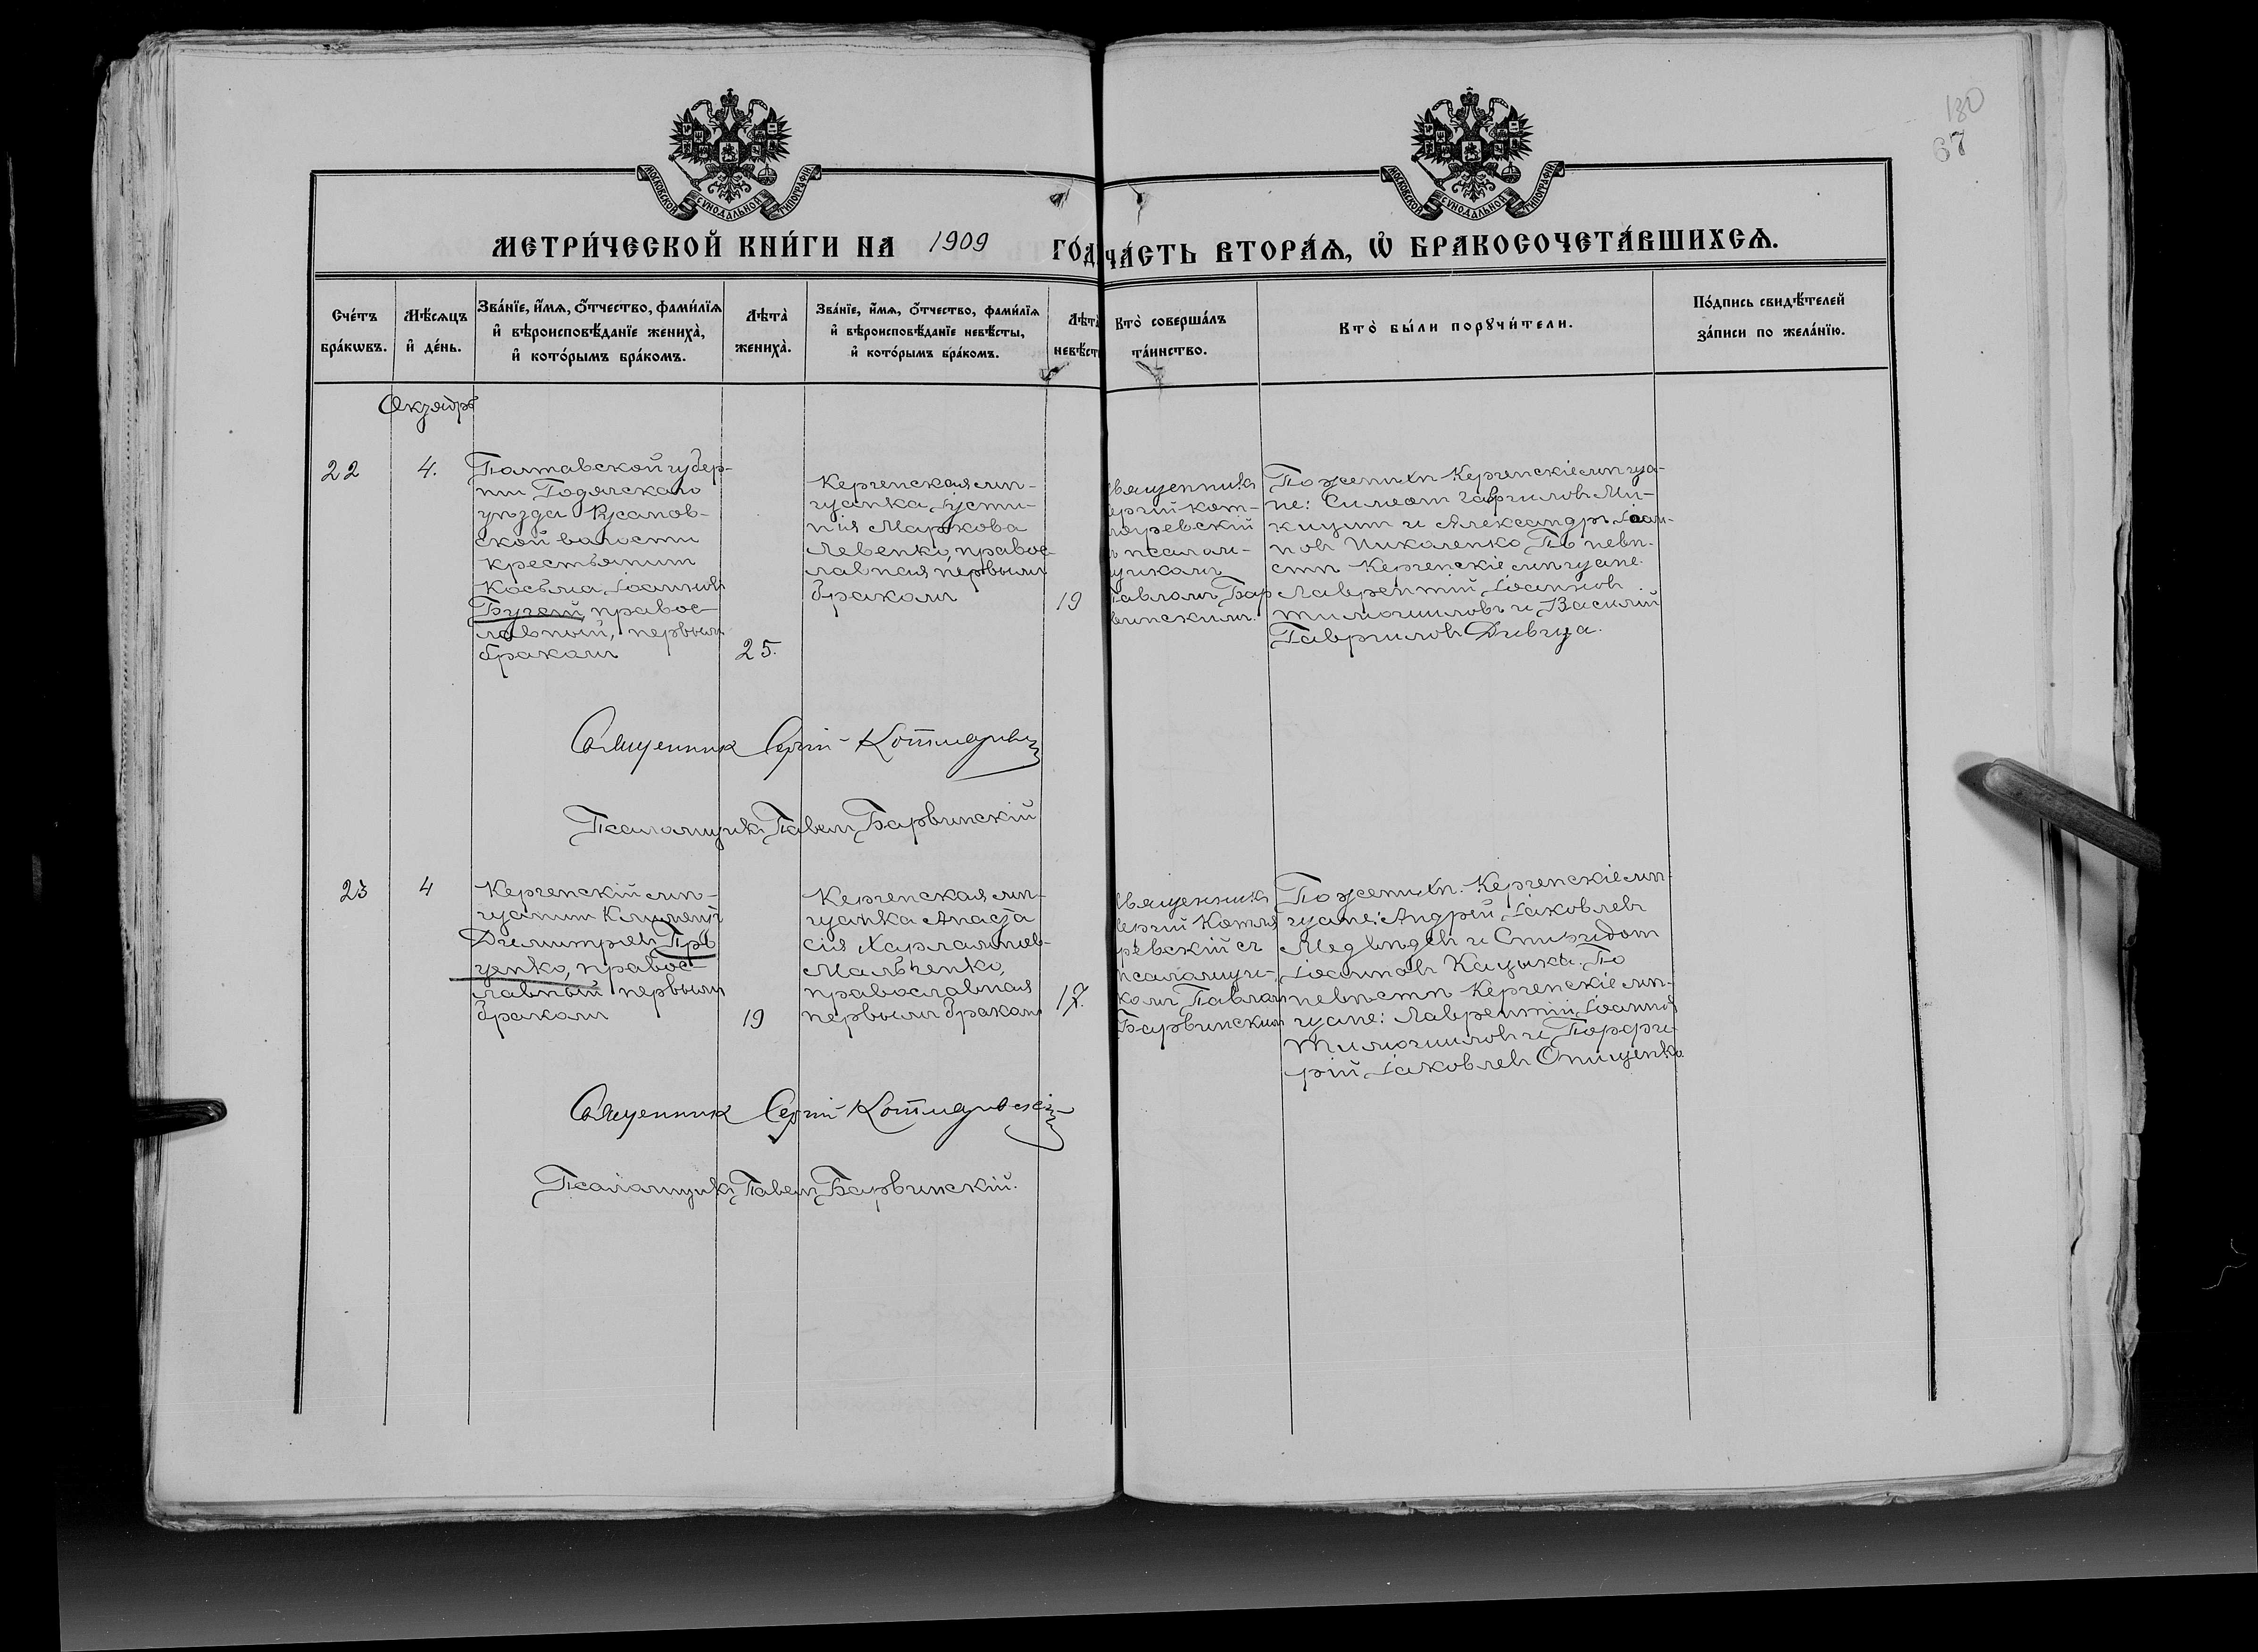 180
67
МОСКОВСКОЙ СѴНОДАЛЬНОЙ ТИПОГРАФІИ
МОСКОВСКОЙ СѴНОДАЛЬНОЙ ТИПОГРАФІИ
МЕТРИ́ЧЕСКОЙ КНИ́ГИ НА 1909 ГО́Д
ЧА́СТЬ ВТОРА́Ѧ, Ѡ҆ БРАКОСОЧЕТА́ВШИХСѦ.
Сче́тъ
бра́кѡвъ.
Мѣ́сѧцъ
и҆ де́нь.
Зва́нїе, и҆́мѧ, ѻ҆́тчество, фами́лїѧ
и҆ вѣроисповѣ́данїе жениха̀,
и҆ кото́рымъ бра́комъ.
Лѣта̀
жениха̀.
Зва́нїе, и҆́мѧ, ѻ҆́тчество, фами́лїѧ
и҆ вѣроисповѣ́данїе невѣ́сты,
и҆ кото́рымъ бра́комъ.
Лѣта̀
невѣ́ст
Кто̀ соверша́лъ
та́инство.
Кто̀ бы́ли порꙋчи́тели.
По́дпись свидѣ́телей
за́писи по жела́нїю.
Октябрь
22
4.
Полтавской губер-
ніи Годячскаго
уѣзда Русанов-
ской волости
крестьянинъ
Косьма Іоанновъ
правос-
лавный, первымъ
бракомъ
25.
Керченская мѣ-
щанка Іусти-
нія Маркова
Левенко, правос-
лавная первымъ
бракомъ
19
вященникъ
ергій Кот-
ляревскій
псалом-
щикомъ
авломъ Бар
винскимъ.
По женихѣ Керченскіе мѣща-
не: Симеонъ Гавриловъ Ми-
и Александръ Іоан-
новъ Николенко По невѣ-
стѣ Керченскіе мѣщане
Лаврентій Іоанновъ
Тимошиловъ и Василій
Гавриловъ
Священникъ Сергій Котляревск
Псаломщикъ Павелъ Барвинскій
23
4
Керченскій мѣ-
щанинъ Климентъ
Димитріевъ Про
ценко, правос-
лавный первымъ
бракомъ
19
Керченская мѣ-
щанка Анаста
сія Харлампіев-
Мальченко,
православная
первымъ бракомъ
17.
вященникъ
ергій Котля
ревскій съ
псаломщи-
комъ Павломъ
Барвинскимъ
По женихѣ Керченскіе мѣ-
щане: Андрей Іаковлевъ
Медвѣдевъ и Спиридонъ
Іоанновъ По
невѣстѣ Керченскіе мѣ-
щане: Лаврентій Іоанновъ
Тимошиловъ и Порфи-
рій Іаковлевъ Онищенко
Священникъ Сергій Котляревскій
Псаломщикъ Павелъ Барвинскій.